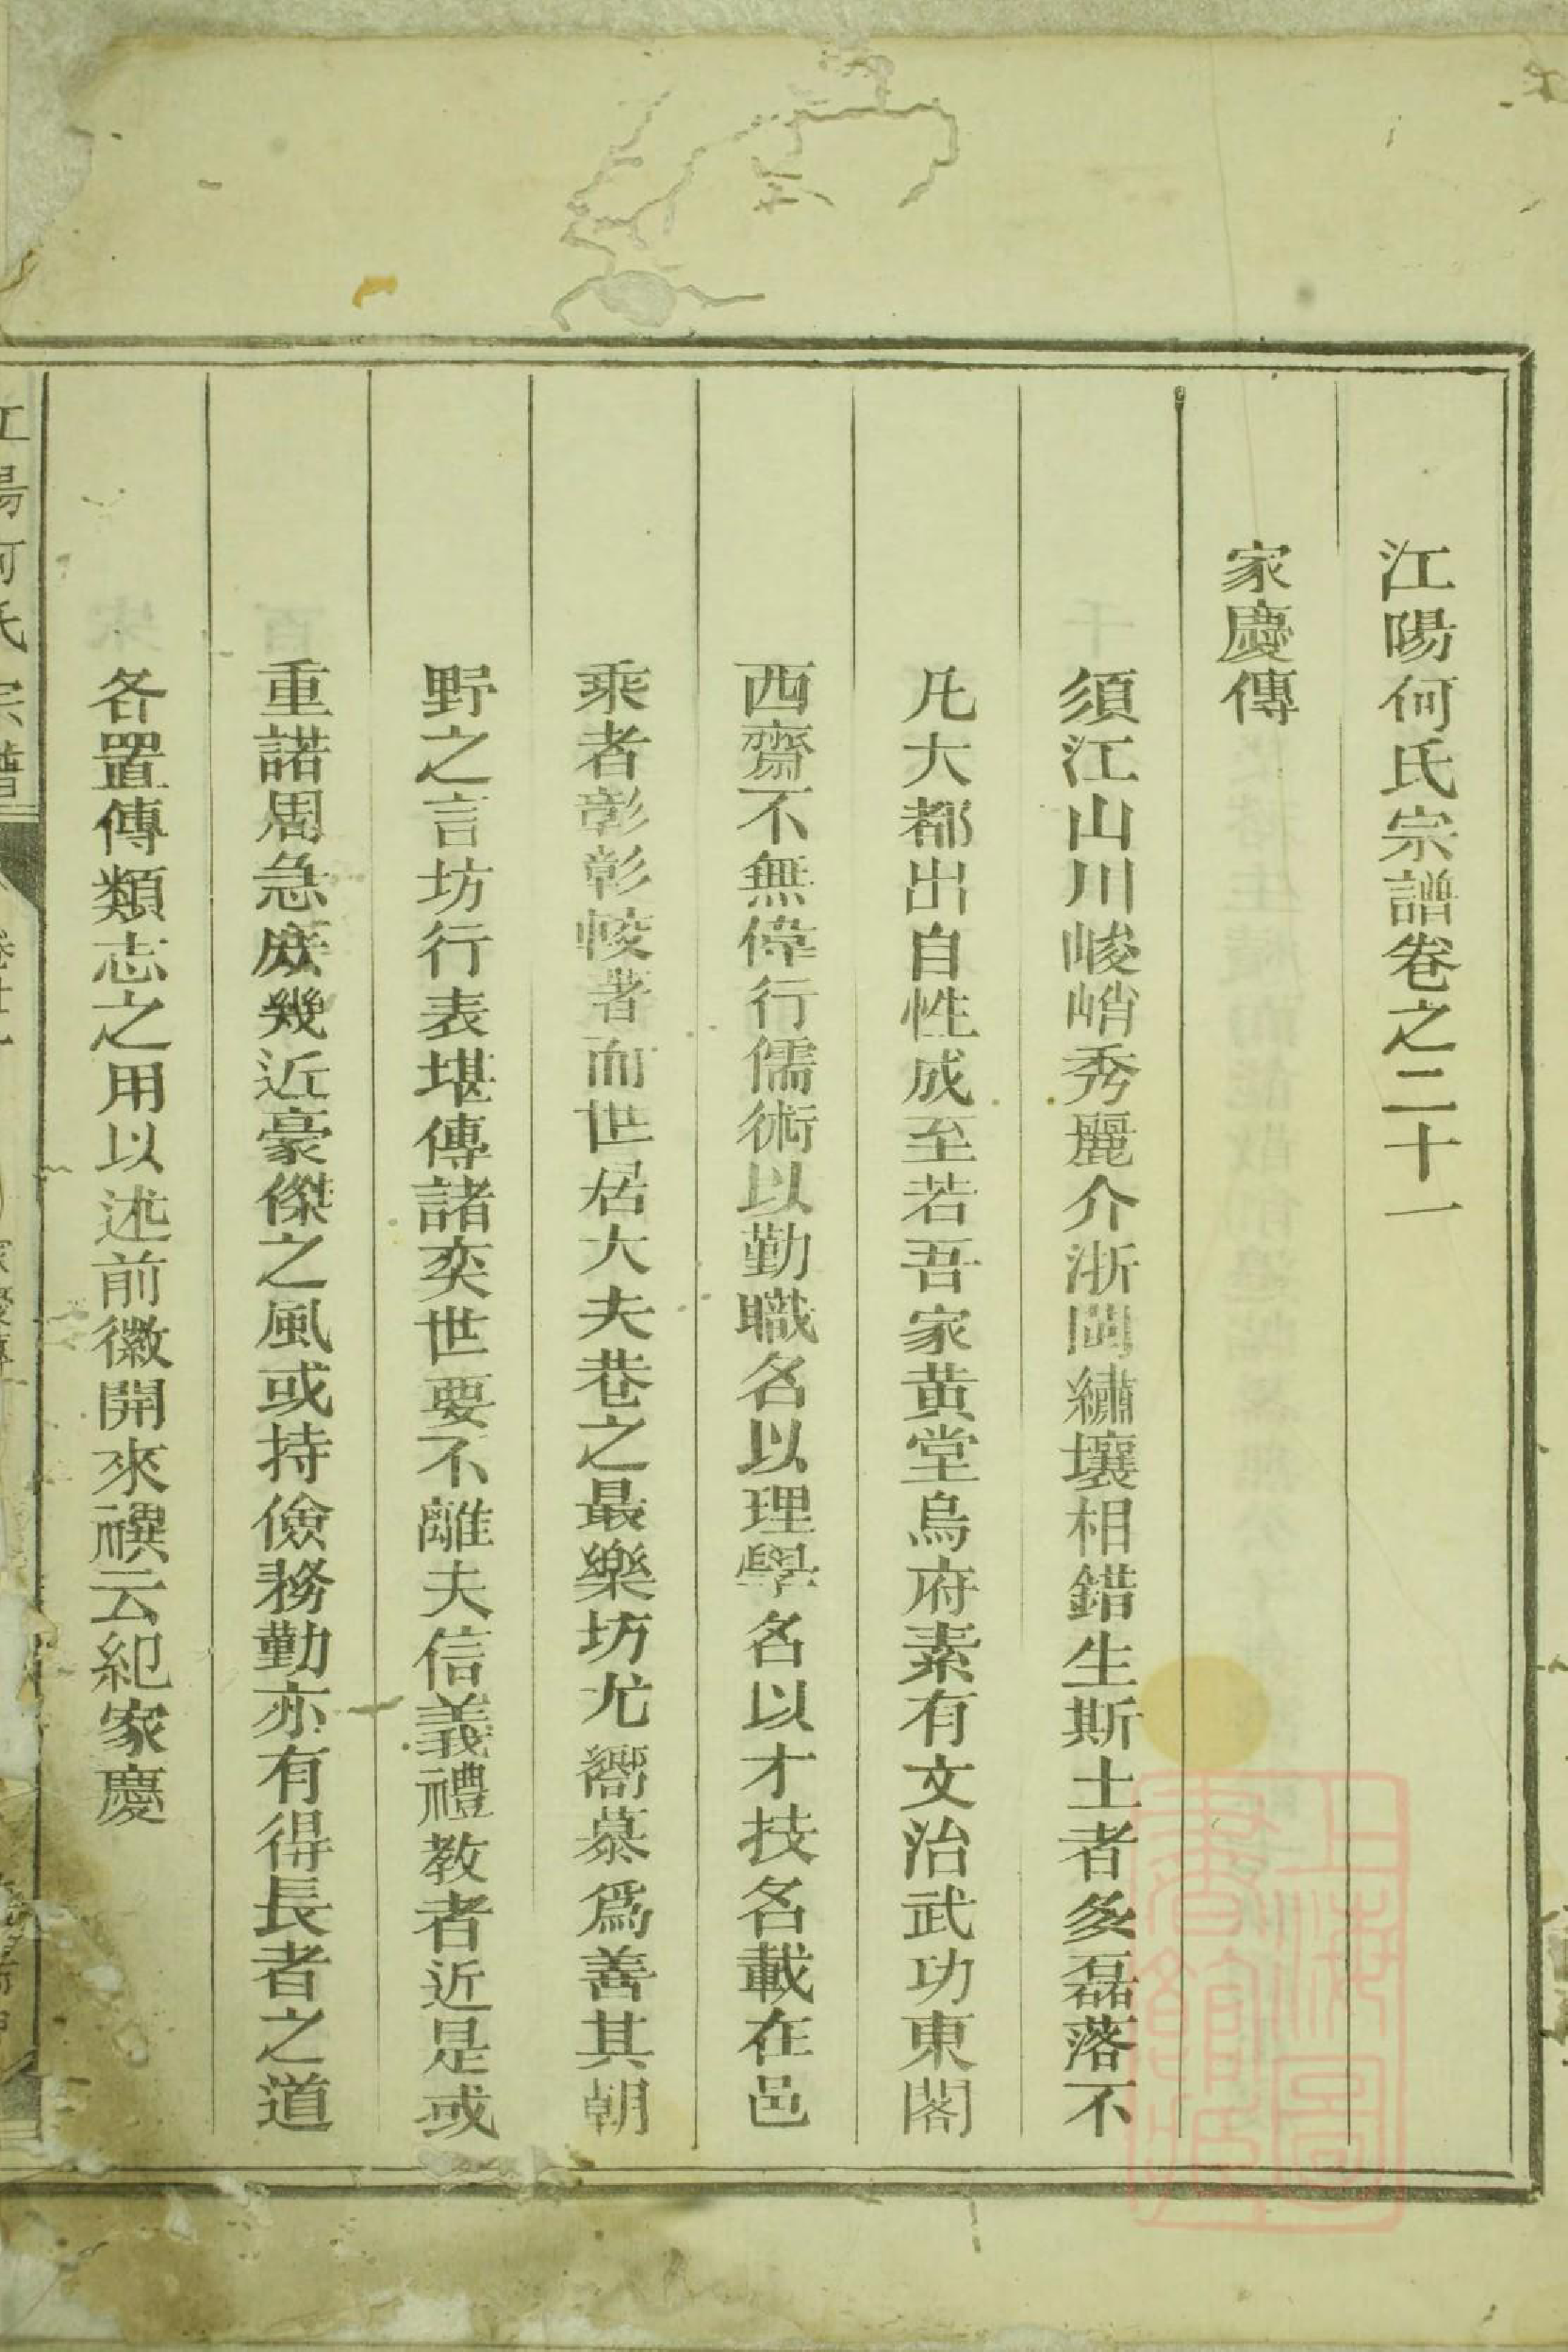 江陽何氏宗譜卷之二十一
家慶傳
須江山川峻峭秀麗介浙閩繡壤相錯生斯土者多磊落不
凡大都出自性成至若吾家黄堂烏府素有文治武功東閣
西齋不無偉行儒術以勤職名以理學名以才技名載在邑
乘者彰彰較著而世居大夫巷之最樂坊尤嚮慕爲善其朝
野之言坊行表堪傳諸奕世要不離夫信義禮教者近是或
重諾周急庶幾近豪傑之風或持儉務勤亦有得長者之道
各置傳類志之用以述前徽開來禩云紀家慶
江陽何氏宗譜
上海圖書館藏